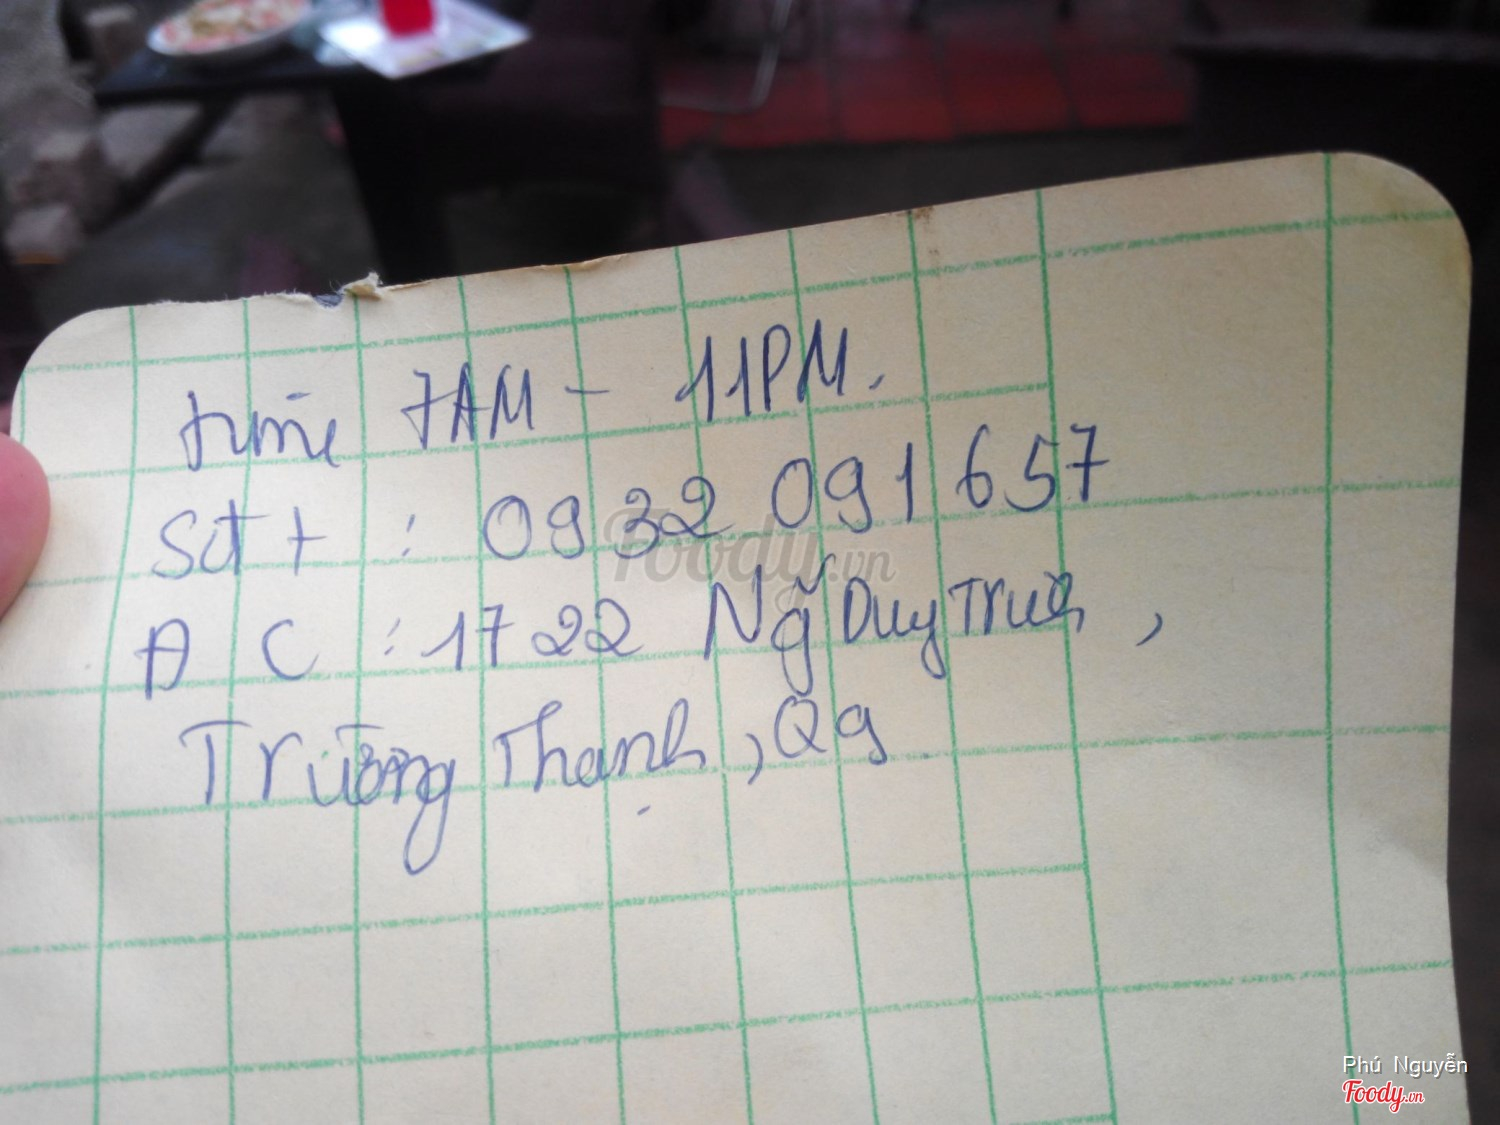 time 7AM - 11PM.
Sđt : 0932 091 657
Foody.vn
Đ C : 1722 Ng̃ Duy Trinh,
Trường Thạnh, Q9
Phú Nguyễn
Foody.vn